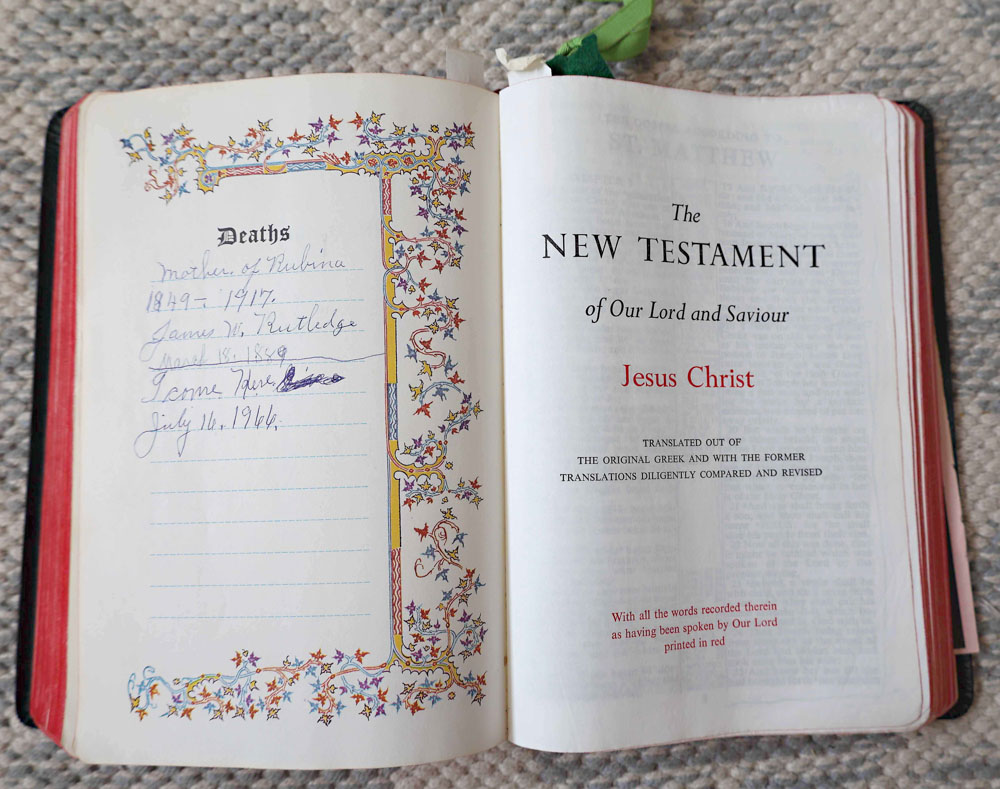 Deaths
Mother of Rubina
1849 - 1917.
James W. Rutledge
March 18, 1889
I come Here
July 16, 1966.
The
NEW TESTAMENT
of Our Lord and Saviour
Jesus Christ
TRANSLATED OUT OF
THE ORIGINAL GREEK AND WITH THE FORMER
TRANSLATIONS DILIGENTLY COMPARED AND REVISED
With all the words recorded therein
as having been spoken by Our Lord
printed in red
ST. MATTHEW